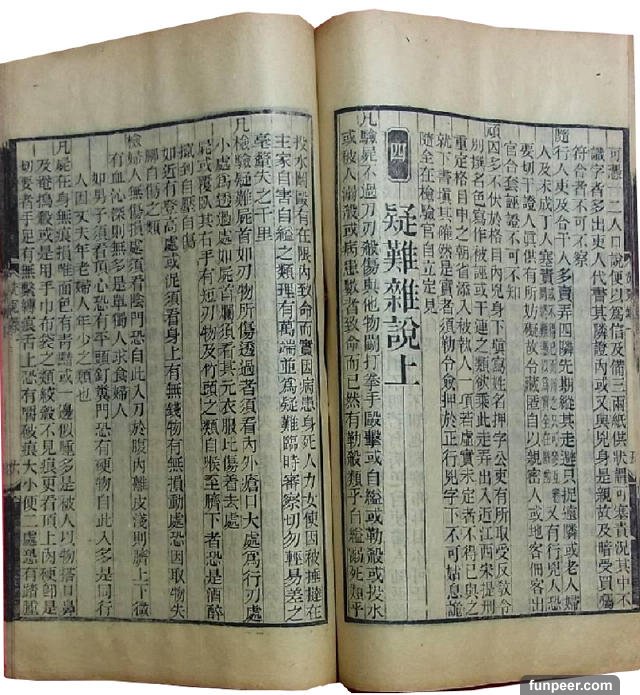 可憑一二人口說便以為信及備三兩紙供狀謂可塞責況其中不
識字者多出吏人代書其隣證內或又與兇身是親故及暗受買囑
符合者不可不察
隨行人吏及合干人多賣弄四隣先期縱其走避只捉遠隣或老人婦
人及未成丁人塞責又有行兇人恐
要切干證人真供有所妨礙故令藏匿自以親密人或地客佃客出
官合套誣證不可不知
頑囚多不伏於格目內兇身下填寫姓名押字公吏有所取受反教令
別撰名色寫作被誣或干連之類欲乘此走弄出入近江西宋提刑
重定格目申之朝省添入被執人一項若虛實未定者不得已與之
就下書填其確然是實者須勒令僉押於正行兇字下不可姑息詭
隨全在檢驗官自立定見
四
疑難雜說上
凡驗屍不過刀刃殺傷與他物鬬打拳手毆擊或自縊或勒殺或投水
或被人溺殺或病患數者致命而已然有勒殺類乎自縊溺死類乎
投水鬬毆有在限內致命而實因病患身死人力女使因被捶撻在
主家自害自縊之類理有萬端並為疑難臨時審察切勿輕易差之
毫釐失之千里
凡檢驗疑難屍首如刃物所傷透過者須看內外瘡口大處為行刃處
小處為透過處如屍首爛須看其元衣服比傷着去處
屍或覆臥其右手有短刃物及竹頭之類自喉至臍下者恐是酒醉
攧到自壓自傷
如近有登高處或泥須看身上有無錢物有無損動處恐因取物失
腳自傷之類
檢婦人無傷損處須看陰門恐自此入刃於腹內離皮淺則臍上下微
有血沁深則無多是單獨人求食婦人
如男子須看頂心恐有平頭釘糞門恐有硬物自此入多是同行
人因丈夫年老婦人年少之類也
凡屍在身無痕損唯面色有青黯或一邊似腫多是被人以物搭口鼻
及罨捂殺或是用手巾布袋之類絞殺不見痕更看頂上肉硬即是
切要者手足有無繫縛痕舌上恐有嚼破痕大小便二處恐有踏腫
funpeer.com